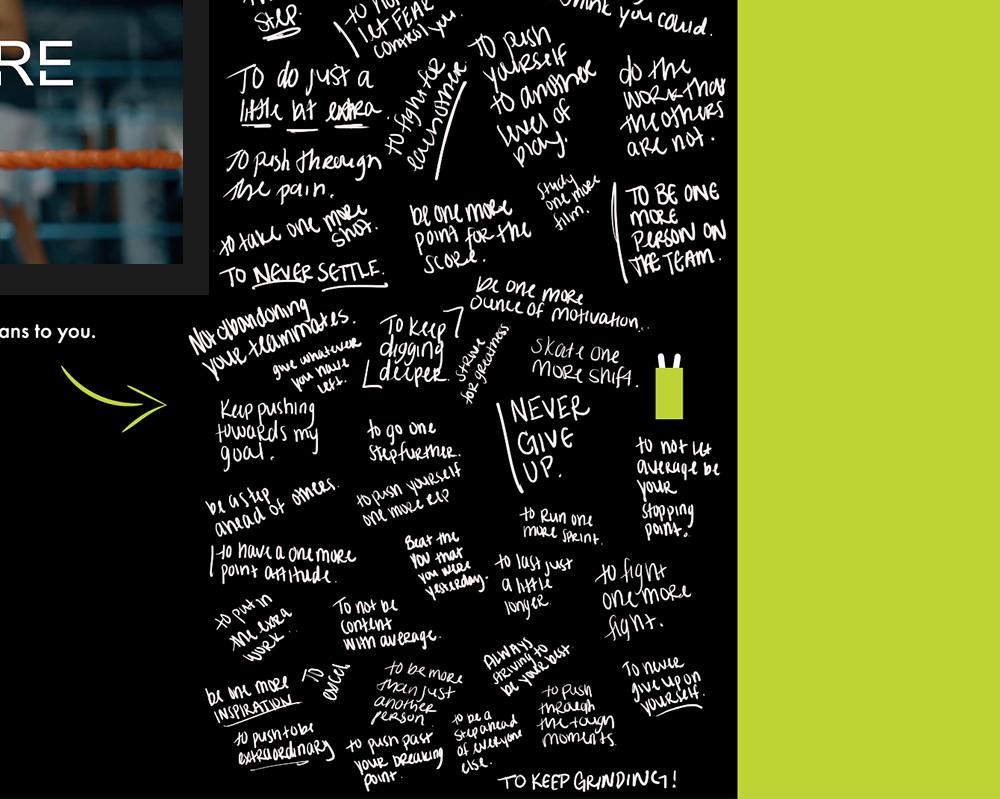 step.
let FEAR
control you.
think you could.
RE
To do just a
little bit extra.
to fight for
each other
TO push
yourself
to another
level of
play.
do the
work that
the others
are not.
To push through
the pain.
to take one more
shot.
be one more
point for the
score.
study
one more
film.
TO BE ONE
MORE
PERSON ON
THE TEAM.
TO NEVER SETTLE.
be one more
ounce of motivation..
Not abandoning
your teammates.
give whatever
you have
left.
To keep
digging
deeper.
strive
for greatness
skate one
more shift.
ans to you.
Keep pushing
towards my
goal.
to go one
step further.
NEVER
GIVE
UP.
to not let
average be
your
stopping
point.
be a step
ahead of others.
to push yourself
one more rep
to run one
more sprint.
to have a one more
point attitude.
Beat the
you that
you were
yesterday.
to last just
a little
longer
to fight
one more
fight.
to put in
the extra
work..
To not be
content
with average.
ALWAYS
striving to
be your best
To never
give up on
yourself.
be one more
INSPIRATION
TO
excel
to be more
than just
another
person.
to push
through
the tough
moments.
to push to be
extraordinary
to push past
your breaking
point.
to be a
step ahead
of everyone
else.
TO KEEP GRINDING!